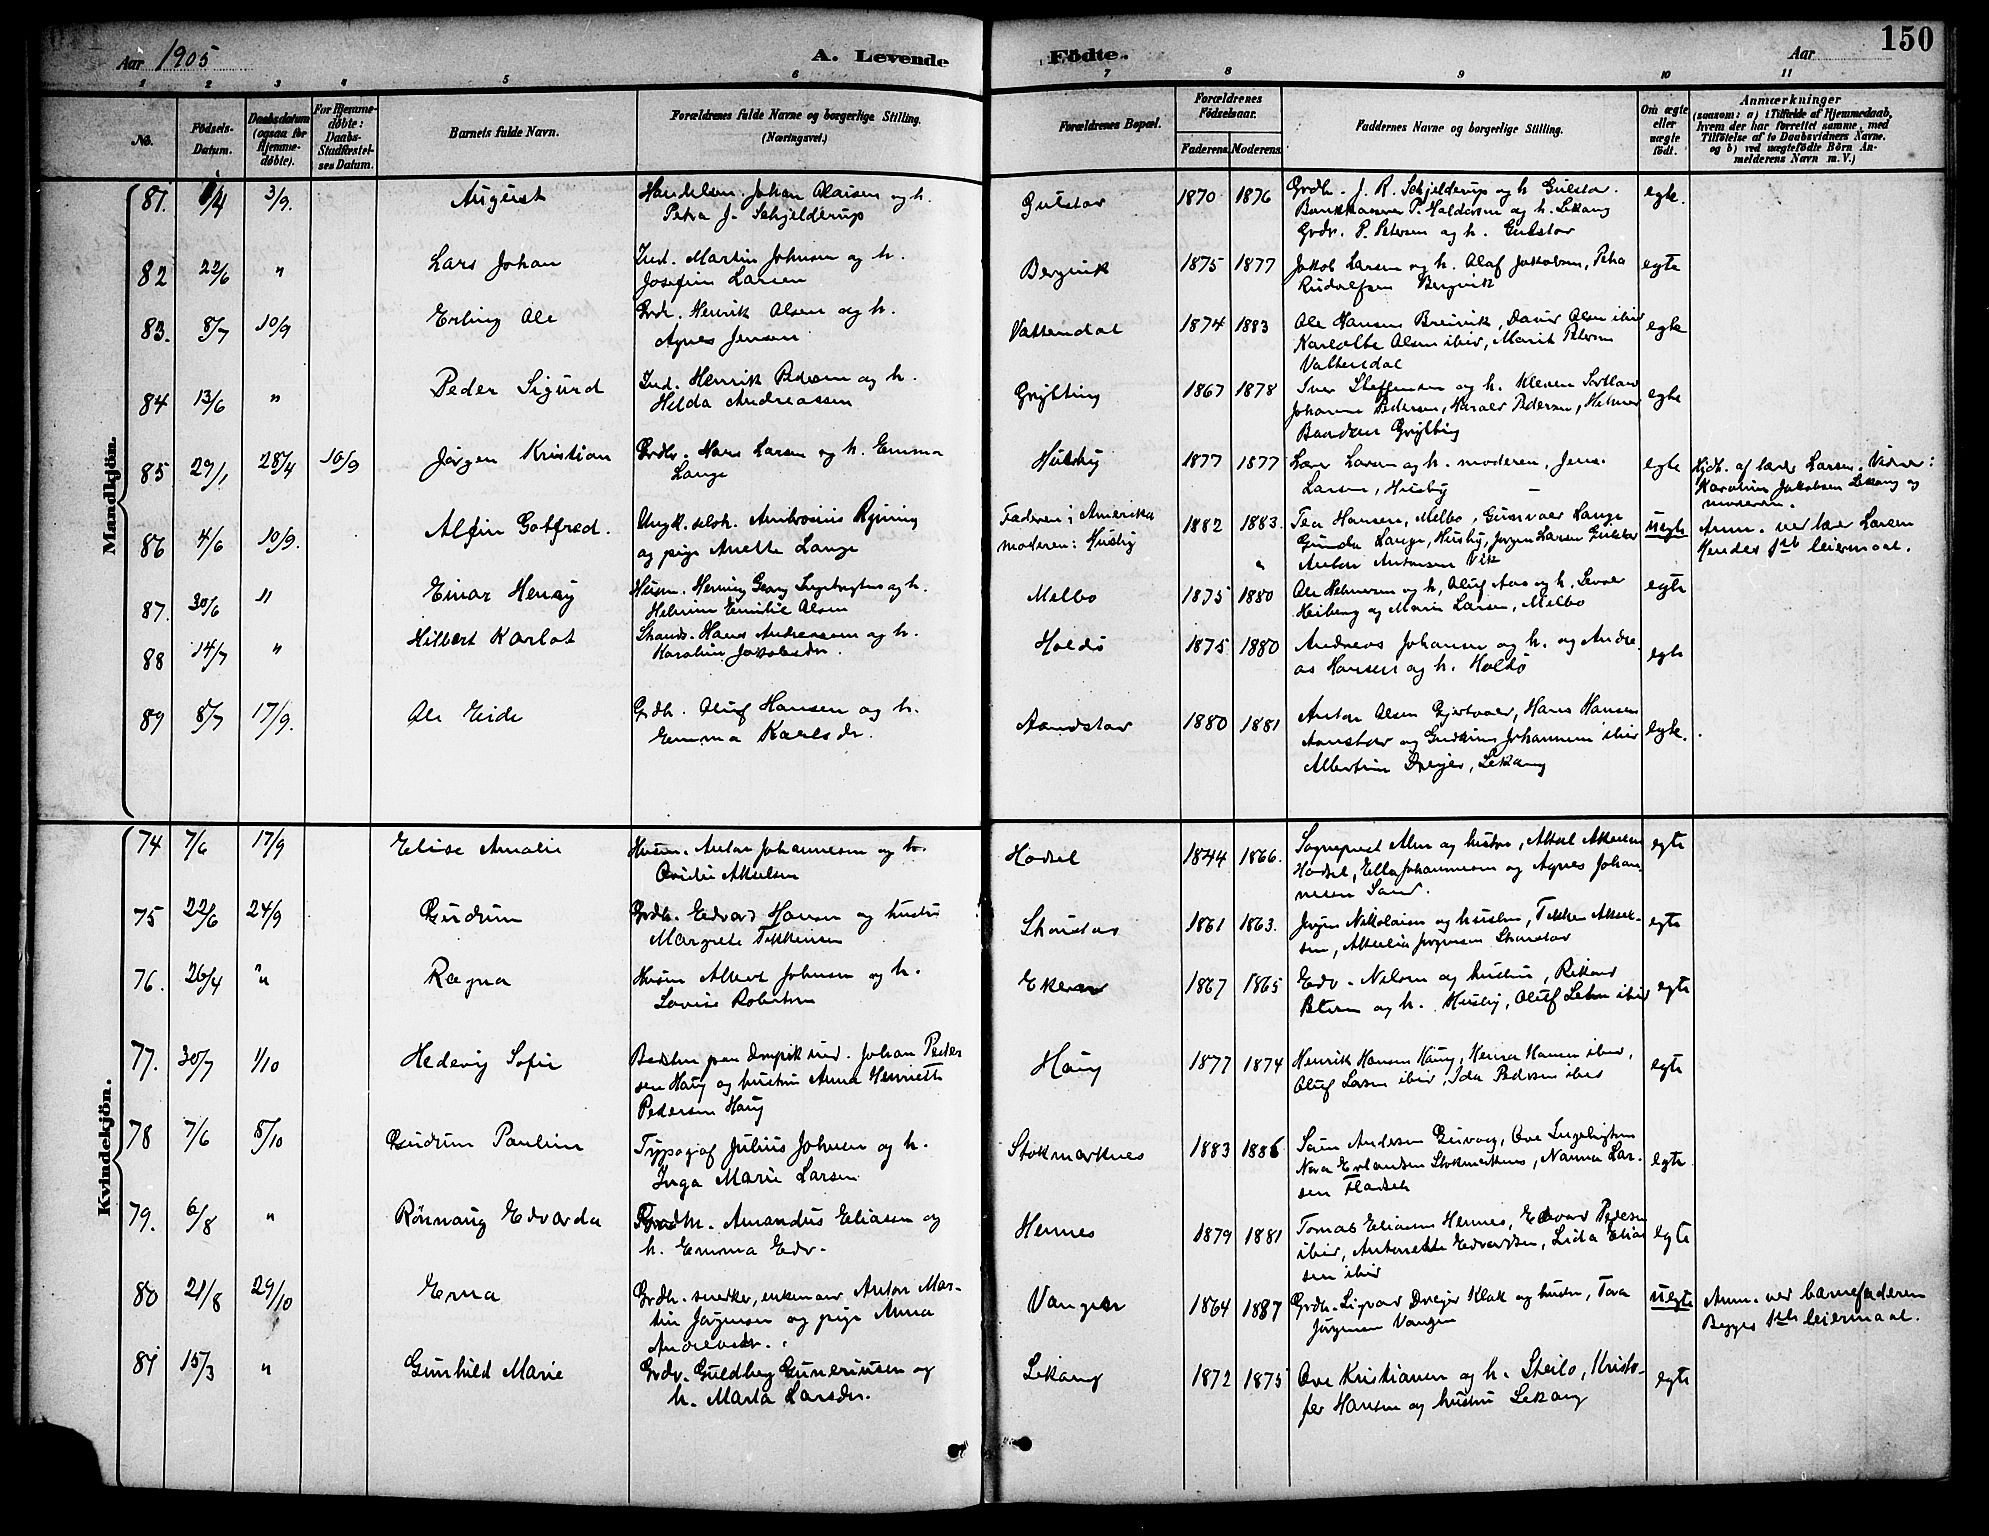 Aar 1905
A. Levende Födte.
Aar
150
1 2 3 4 5 6 7 8 9 10 11
No.
Födsels-Datum.
Daabsdatum (ogsaa for Hjemmedöbte).
For Hjemmedöbte: Daabs-Stadfæstelses Datum.
Barnets fulde Navn.
Forældrenes fulde Navne og borgerlige Stilling.
(Næringsvei.)
Forældrenes Bopæl.
Forældrenes Födselsaar.
Faderens. Moderens.
Faddernes Navne og borgerlige Stilling.
Om ægte eller uægte födt.
Anmærkninger
(saasom: a) i Tilfælde af Hjemmedaab, hvem der har forrettet samme, med Tilföielse af to Daabsvidners Navne. og b) ved uægtefödte Börn Anmelderens Navn m. V.)
Mandkjön.
81. 1/4 3/9. August
Johan Olaisen og h.
Petra J. Schjelderup
Gulstav 1870 1876
Grdb. J. R. Schjelderup og h Gulstav.
P. Haldorsen og h. Lekang
P. Petersen og h. Gulstav
egte.
82 22/6 " Lars Johan
Ind. Martin Johnsen og h.
Josefine Larsen
Bergvik 1875 1877
Jakob Larsen og h. Olaf Jakobsen, Petra
Rudolfsen Bergvik
egte
83. 8/7 10/9 Erling Ole
Grdb. Henrik Olsen og h.
Agnes Jensen
Vattendal 1874 1883
Ole Hansen Breivik, David Olsen ibid
Olsen ibid, Marit Petersen
Vattendal
egte
84 13/6 " Peder Sigurd
Ind. Henrik Pedersen og h.
Helda Andreassen
Grytting 1867 1878
Iver Steffensen og h. Kleven Sortland
Johanna Pedersen, Harald Pedersen, Helmer
Grytting
egte
85 29/1 28/4 10/9 Jörgen Kristian
Grdb. Hans Larsen og h. Emma
Lange
Husby 1877 1877
Lærer Larsen og h. moderen, Jens
Larsen, Husby
egte
Hjdb. af lærer Larsen. Vidner:
Karoline Jakobsen Lekang og
moderen.
86 4/6 10/9. Alfin Gotfred.
Ungk. Ambrosius Ryning
og pige Anette Lange
Faderen i Amerika
moderen: Husby 1882 1883.
Tea Hansen, Melbo, Gunvaer Lange
Gunda Lange, Husby, Jörgen Larsen Gulstav
Anton Antonsen Vik
uegte
Anm. ved lærer Larsen
Hendes 1ste leiermaal.
87. 30/6 " Einar Henry
Husm. Henning Georg Ingebrigtsen og h.
Helmine Emilie Olsen
Melbo 1875 1880
Ole Helmersen og h, Oluf Aas og h,
Heiberg og Marie Larsen, Melbo
egte
88 14/7 " Hilbert Karlot
Strands. Hans Andreassen og h.
Karoline Jakobsdr.
Holdö 1875 1880
Andreas Johansen og h. og Andre
as Hansen og h. Holdö
egte
89 8/7 17/9. Ole Eide
Grdb. Oluf Hansen og h.
Emma Karlsdr.
Aandstav 1880 1881
Anton Olsen, Hans Hansen
Aanstav og Johannesen ibid
Albertine Dreyer, Lekang
egte.
Kvindekjön.
74 7/6 17/9 Elise Amalie
Husm. Anton Johannesen og h.
Akselsen
Hadsel 1844 1866.
Sogneprest Alm og hustru, Aksel Akselsen
Hadsel, Ella Johannesen og Agnes Johan-
nesen Sand.
egte
75 22/6 24/9 Gudrun
Grdb. Edvard Hansen og hustru
Margrete Tekkensen
1861 1863.
Jörgen Nikolaisen og hustru, Aksel-
sen, Jörgensen
egte
76. 26/4 " Ragna
Husm Albert Johnsen og h.
Lovise Robertsen
Ekeren 1867 1865
Edv. Nilsen og hustru, Rikard
Petersen og h. Husby, Oluf ibid
egte
77. 30/7 1/10 Hedevig Sofie
ind. Johan Peder
sen Haug og hustru Anna Henriette
Pedersen Haug
Haug 1877 1874
Henrik Hansen Haug, Hansen ibid,
Oluf Larsen ibid, Ida Pedersen ibid
egte
78 7/6 8/10 Gudrun Pauline
Typograf Julius Johnsen og h.
Inga Marie Larsen
Stokmarknes 1883 1886
Andersen, Ove Ingebrigtsen
Nora Erlandsen Stokmarknes, Nanna Lar-
sen
egte.
79. 6/8 " Rönnaug Edvarda
Grdb. Amandus Eliasen og
h. Emma Edv.
Hennes 1879 1881
Tomas Eliasen Hennes, Edvard Pedersen
ibid, Antonette Edvardsen, Lida Elia
sen ibid
egte
80 21/8 29/10 Erna
Grdb. snedker, enkemand Anton Mar-
tin Jörgensen og pige Anna
Vangen 1864 1887
Grdb. Sigvard Dreyer Klak og hustru, Tora
Jörgensen Vangen
uegte
Anm. ved barnefaderen
Begges 1ste leiermaal.
81 15/3 " Gunhild Marie
Grdb. Guldberg Gunerius­sen og
h. Marta Larsdr.
Lekang 1872 1875
Ove Kristiansen og h. Steilo, Kristo-
fer Hansen og hustru Lekang
egte